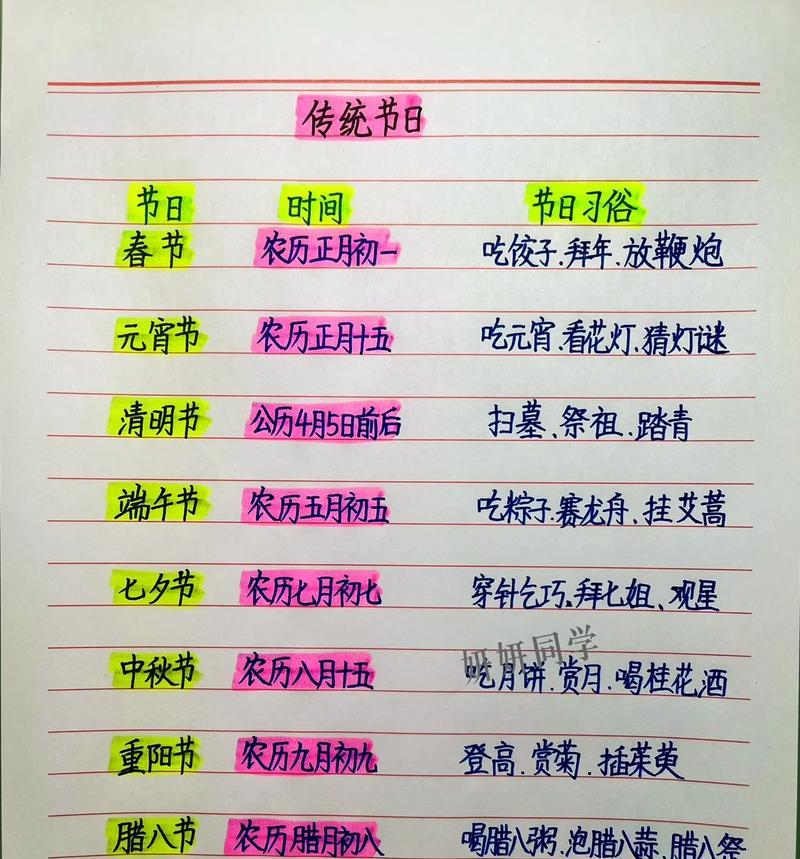 传统节日
节日 时间 节日习俗
春节 农历正月初一 吃饺子、拜年、放鞭炮
元宵节 农历正月十五 吃元宵、看花灯、猜灯谜
清明节 公历4月5日前后 扫墓、祭祖、踏青
端午节 农历五月初五 吃粽子、赛龙舟、挂艾蒿
七夕节 农历七月初七 穿针乞巧、拜七姐、观星
妍妍同学
中秋节 农历八月十五 吃月饼、赏月、喝桂花酒
重阳节 农历九月初九 登高、赏菊、插茱萸
腊八节 农历腊月初八 喝腊八粥、泡腊八蒜、腊八祭